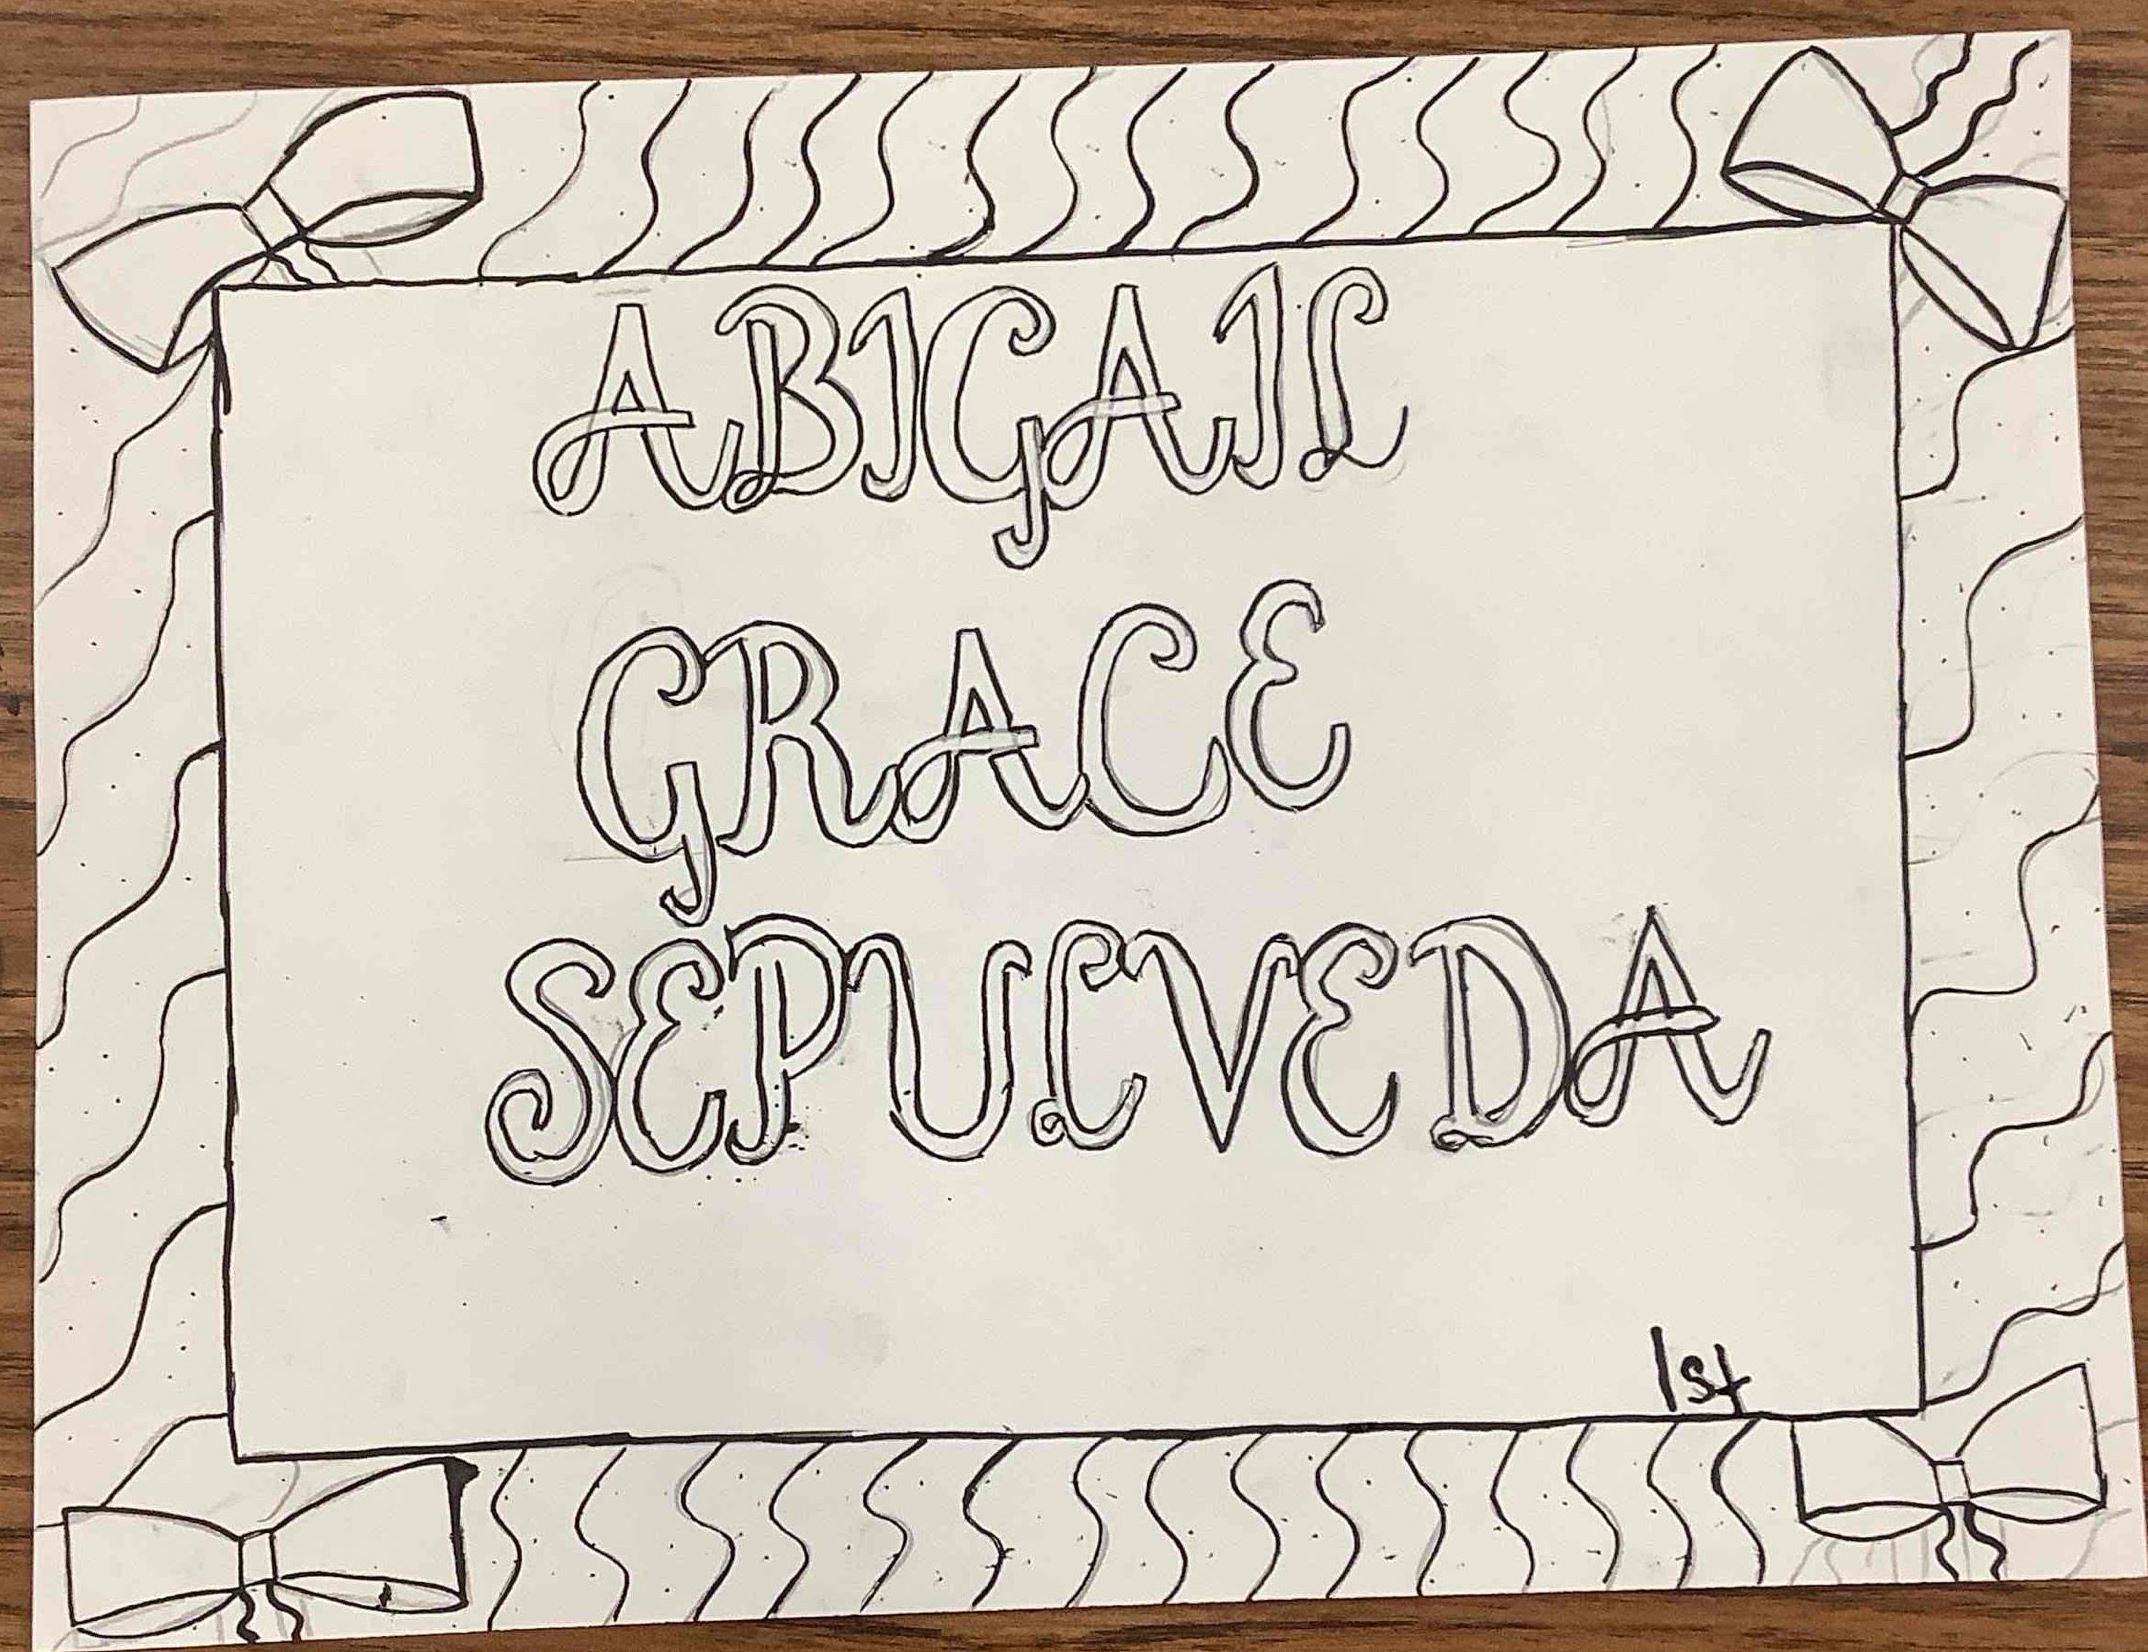 ABIGAIL
GRACE
SEPULVEDA
1st